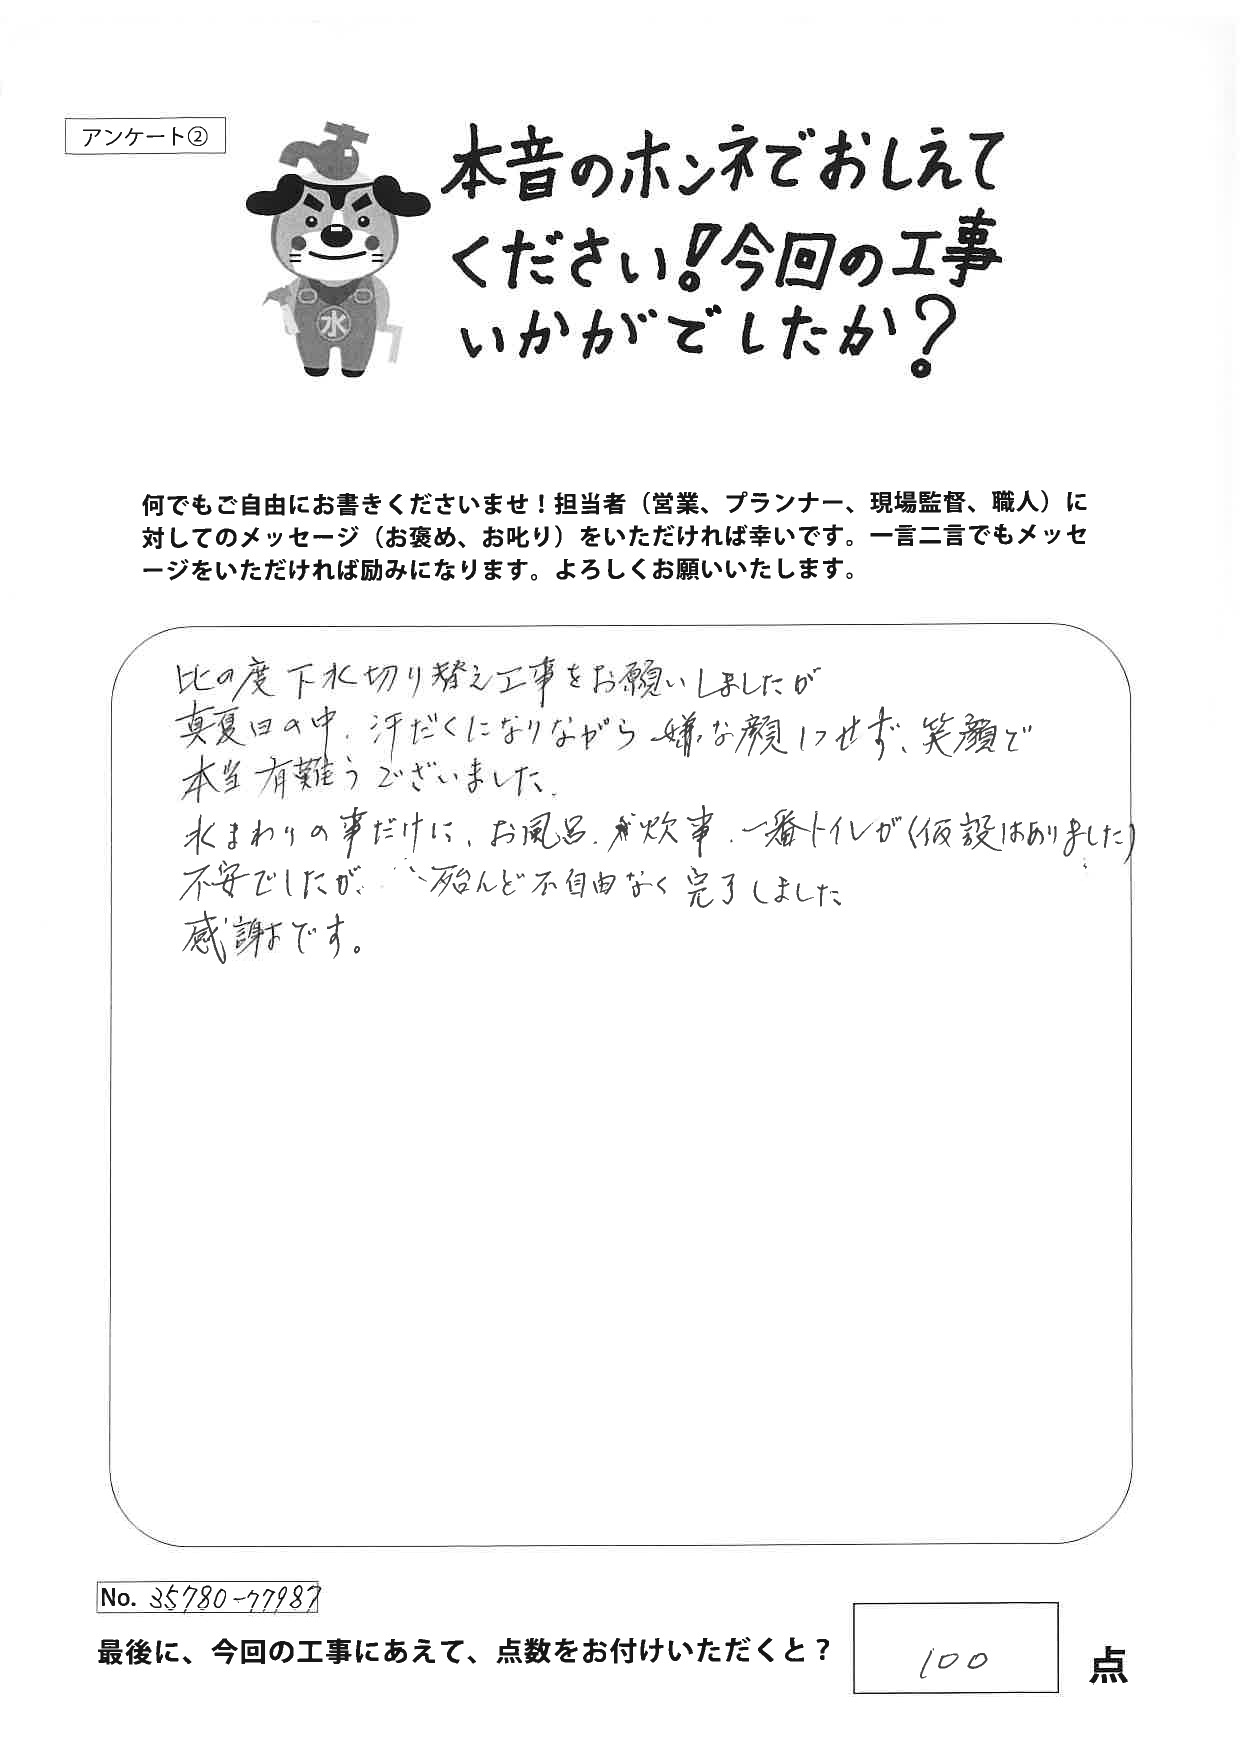 アンケート②
本音のホンネでおしえて
ください!今回の工事
いかがでしたか?
水
何でもご自由にお書きくださいませ！担当者（営業、プランナー、現場監督、職人）に
対してのメッセージ（お褒め、お叱り）をいただければ幸いです。一言二言でもメッセ
ージをいただければ励みになります。よろしくお願いいたします。
比の度下水切り替え工事をお願いしましたが
真夏日の中、汗だくになりながら嫌な顔1つせず、笑顔で
本当有難うございました。
水まわりの事だけに、お風呂、炊事、一番トイレが(仮設はありました)
不安でしたが、殆んど不自由なく完了しました
感謝です。
No. 35780-77987
最後に、今回の工事にあえて、点数をお付けいただくと？
100
点